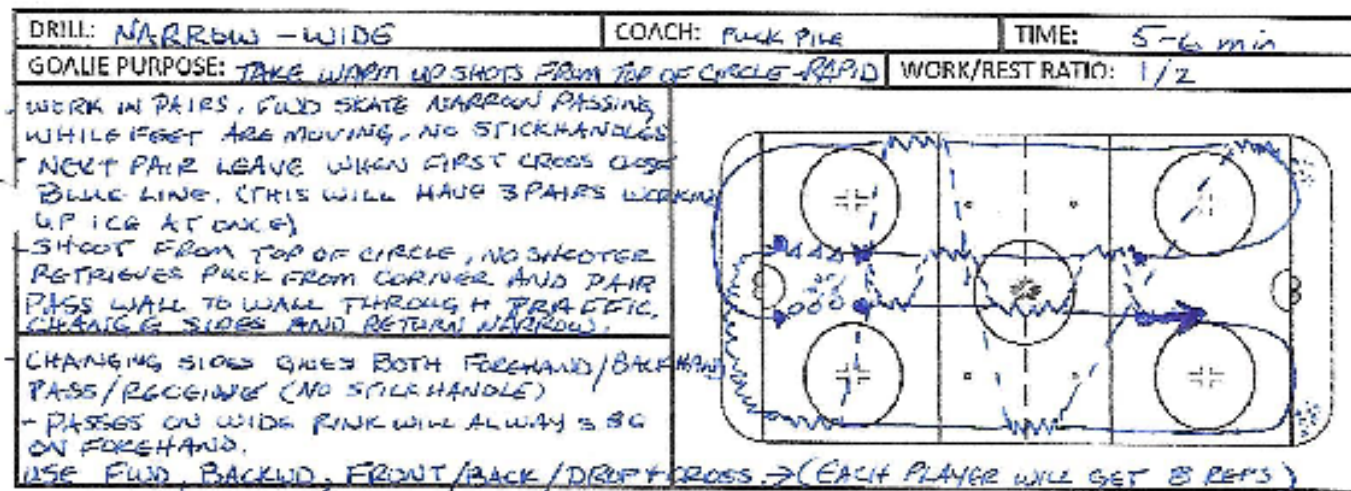 DRILL: NARROW - WIDE COACH: PUCK PINE TIME: 5-6 min
GOALIE PURPOSE: TAKE WARM UP SHOTS FROM TOP OF CIRCLE - RAPID WORK/REST RATIO: 1/2
- WORK IN PAIRS, FWD SKATE NARROW PASSING
WHILE FEET ARE MOVING, NO STICKHANDLES
- NEXT PAIR LEAVE WHEN FIRST CROSS CLOSE
BLUE LINE. (THIS WILL HAVE 3 PAIRS WORKING
UP ICE AT ONCE)
- SHOOT FROM TOP OF CIRCLE, NO SHOOTER
RETRIEVES PUCK FROM CORNER AND PAIR
PASS WALL TO WALL THROUGH TRAFFIC,
CHANGE SIDES AND RETURN NARROW.
- CHANGING SIDES GIVES BOTH FOREHAND/BACKHAND
PASS/RECEIVE (NO STICKHANDLE)
- PASSES ON WIDE RINK WILL ALWAYS BE
ON FOREHAND.
USE FWD, BACKWD, FRONT/BACK/DROP + CROSS. → (EACH PLAYER WILL GET 8 REPS)